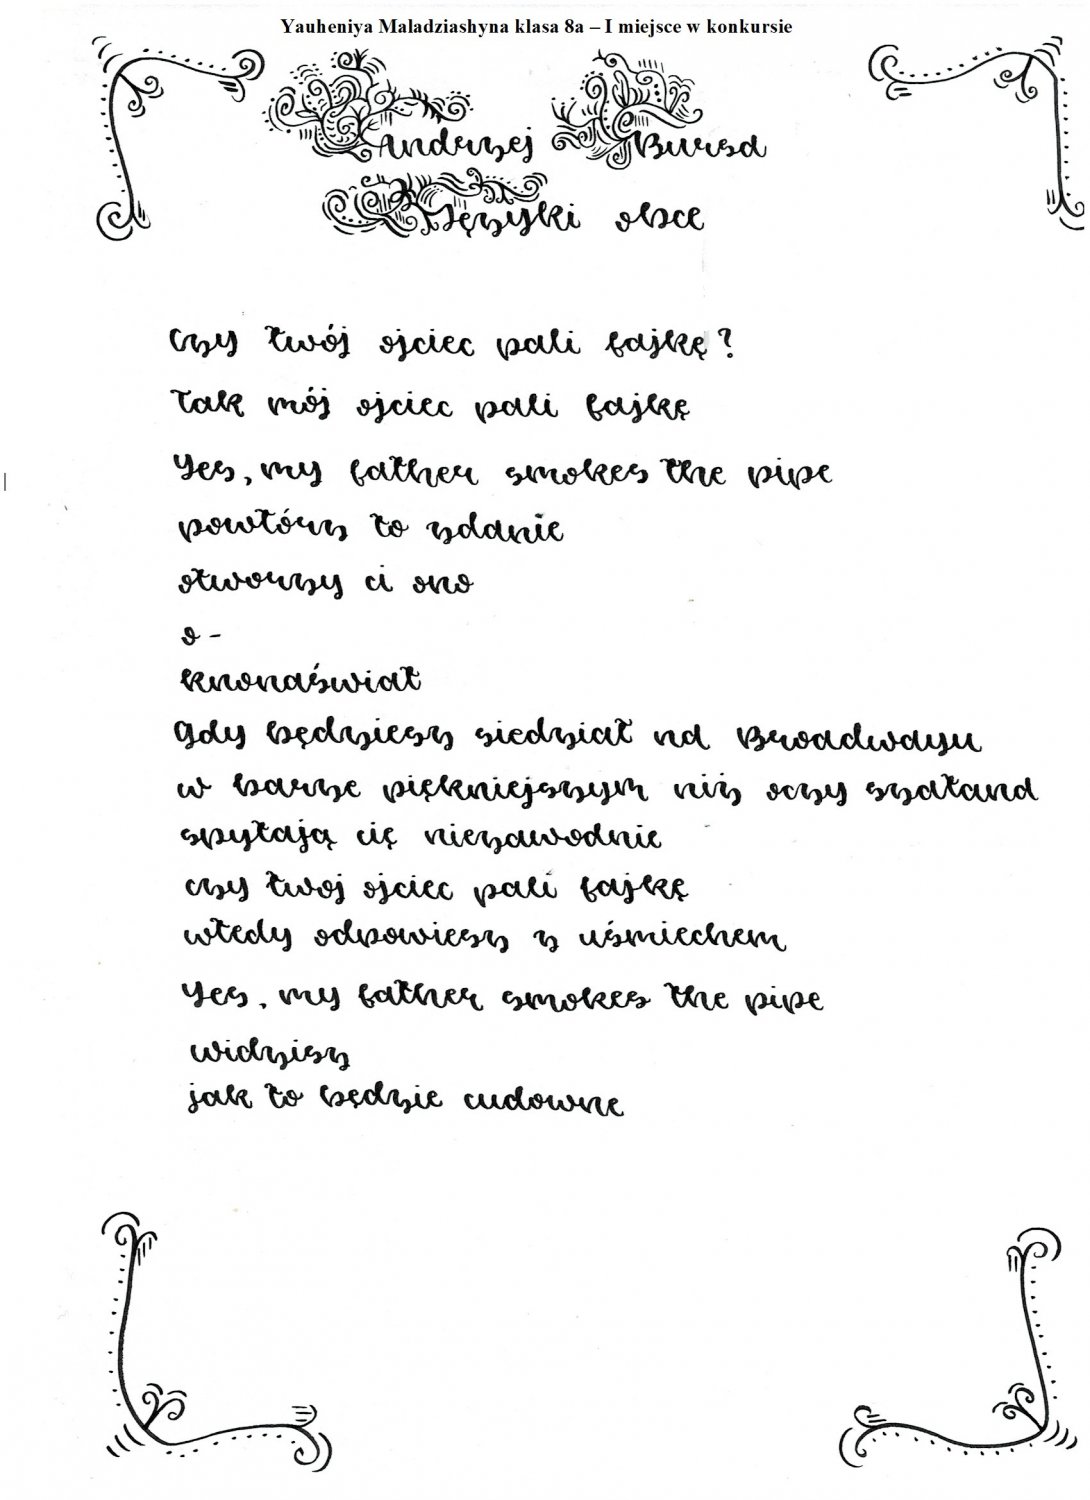 Yauheniya Maladziashyna klasa 8a – I miejsce w konkursie
Andrzej Bursa
Języki obce
Czy twój ojciec pali fajkę?
Tak mój ojciec pali fajkę
Yes, my father smokes the pipe
powtórz to zdanie
otworzy ci ono
o -
knonaświat
Gdy będziesz siedział na Broadwayu
w barze piękniejszym niż oczy szatana
spytają cię niezawodnie
czy twoj ojciec pali fajkę
wtedy odpowiesz z uśmiechem
Yes, my father smokes the pipe
widzisz
jak to będzie cudowne